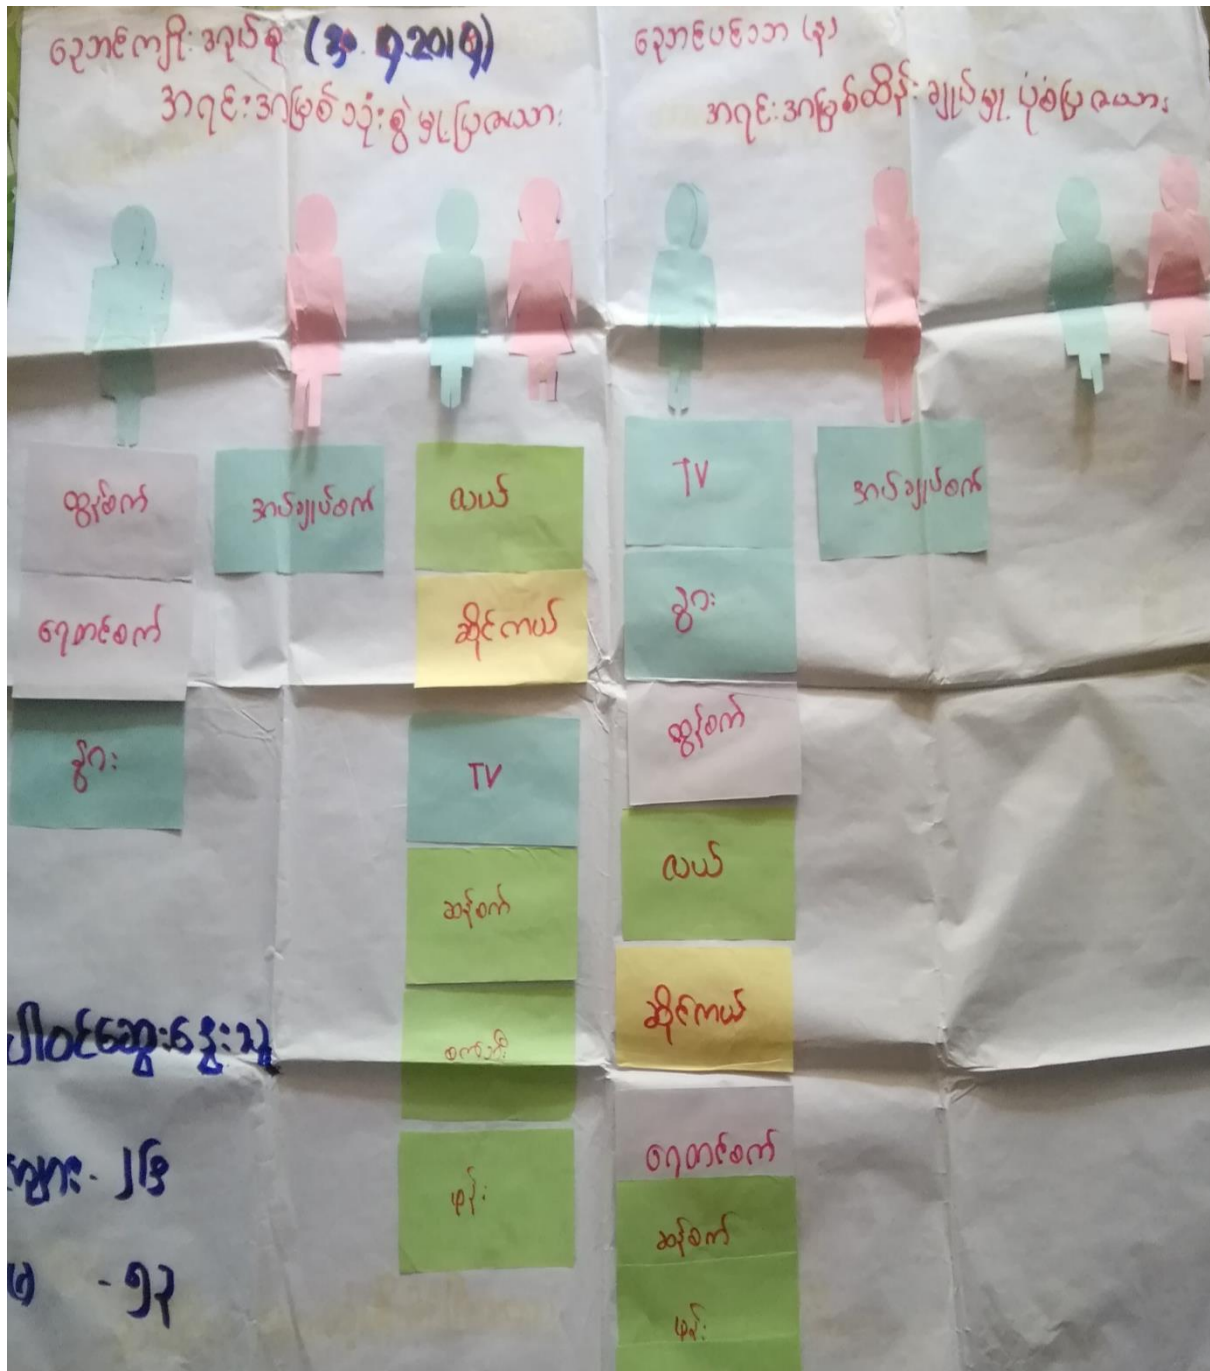 အရင်းအမြစ်သုံးစွဲမှု့ပြဇယား
အရင်းအမြစ်ထိန်းချုပ်မှု့ပုံစံပြဇယား
ထွန်စက်
ရေတင်စက်
နွား
အပ်ချုပ်စက်
လယ်
ဆိုင်ကယ်
TV
ဆန်စက်
စက်ဘီး
ဖုန်း
TV
နွား
ထွန်စက်
လယ်
ဆိုင်ကယ်
ရေတင်စက်
ဆန်စက်
ဖုန်း
အပ်ချုပ်စက်
ပါဝင်ဆွေးနွေးသူ